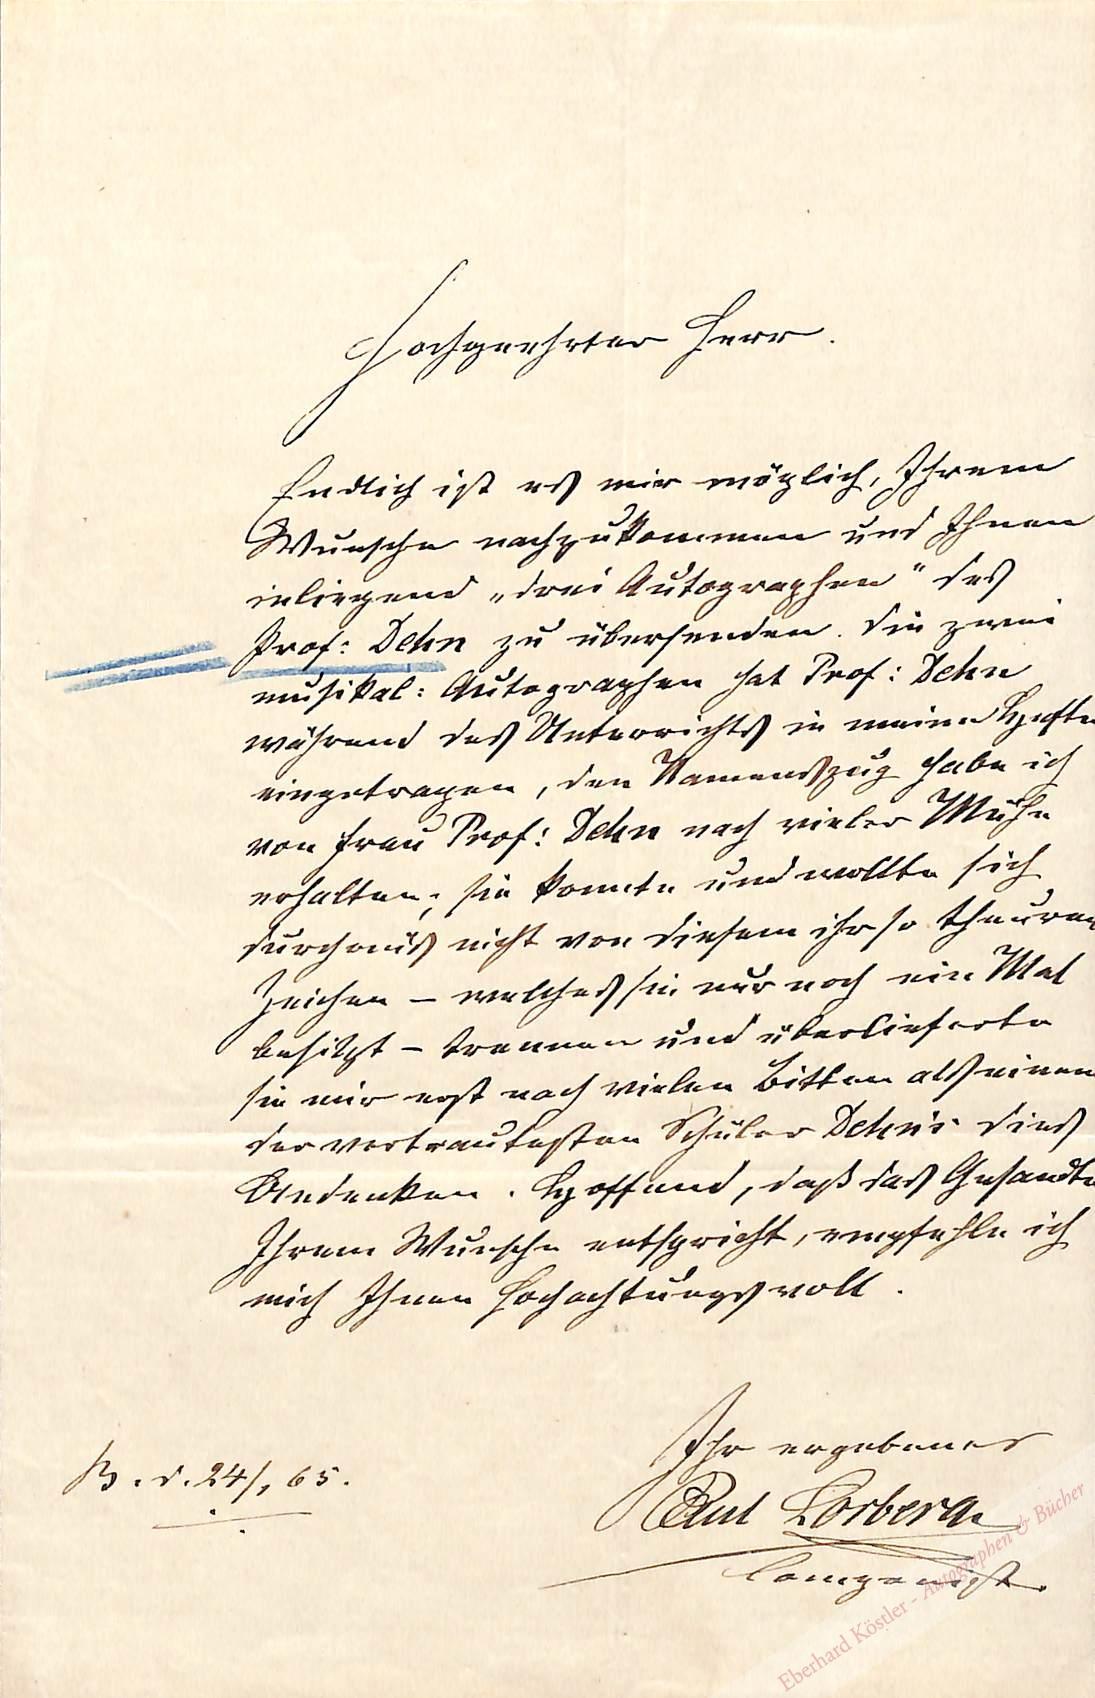 Hochgeehrter Herr.
Endlich ist es mir möglich, Ihrem
Wunsche nachzukommen und Ihnen
inliegend „drei Autographen" des
Prof: Dehn zu übersenden. Die zwei
musikal: Autographen hat Prof: Dehn
während des Unterrichts in meine Hefte
eingetragen, den Namenszug habe ich
von Frau Prof: Dehn nach vieler Mühe
erhalten; sie konnte und wollte sich
durchaus nicht von diesem ihr so theuren
Zeichen – welches sie nur noch ein Mal
besitzt – trennen und überlieferte
sie mir erst nach vielen Bitten als einem
der vertrautesten Schüler Dehn's dies
Andenken. Hoffend, daß das Gesandte
Ihrem Wunsche entspricht, empfehle ich
mich Ihnen hochachtungsvoll.
Ihr ergebener
B. d. 24/, 65.
Paul Lorberg
Componist.
Eberhard Köstler - Autographen & Bücher